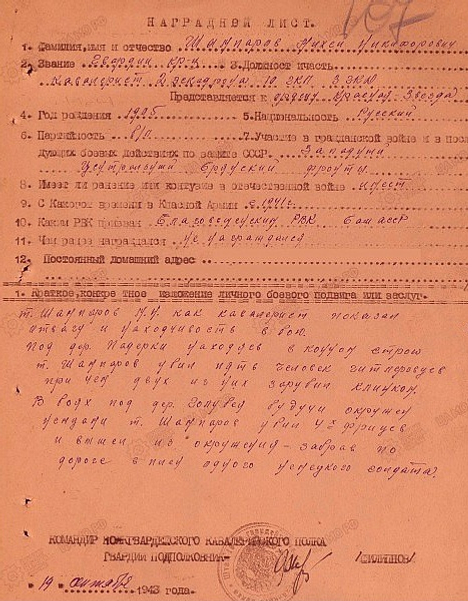 НАГРАДНОЙ ЛИСТ.
1. Фамилия, имя и отчество Шампаров Никифорович
2. Звание Гвардии кр-ц 3. Должность и часть
Кавалерист 2 эскадрона 10 ГКП 3 ГКД
Представляется к ордену Красная Звезда
4. Год рождения 5. Национальность Русский
6. Партийность б/п 7. Участие в гражданской войне и в после
дующих боевых действиях по защите СССР. Западный
Центральный Брянский фронты
8. Имеет ли ранение или контузию в отечественной войне имеет
9. С какого времени в Красной Армии с 1941г
10. Каким РВК призван Благовещенским РВК Баш АССР
11. Чем ранее награждался не награждался
12. Постоянный домашний адрес
1. Краткое, конкретное изложение личного боевого подвига или заслуг.
т. Шампаров Н.Н. как кавалерист показал
отвагу и находчивость в бою.
Под дер. находясь в конном строю
т. Шампаров убил пять человек гитлеровцев
при чем двух из них зарубил клинком.
В боях под дер. будучи окружен
немцами т. Шампаров убил 4-х фрицев
и вышел из окружения - забрав по
дороге в плен одного немецкого солдата.
КОМАНДИР ГВАРДЕЙСКОГО КАВАЛЕРИЙСКОГО ПОЛКА
ГВАРДИИ ПОДПОЛКОВНИК-
"19" октября 1943 года.